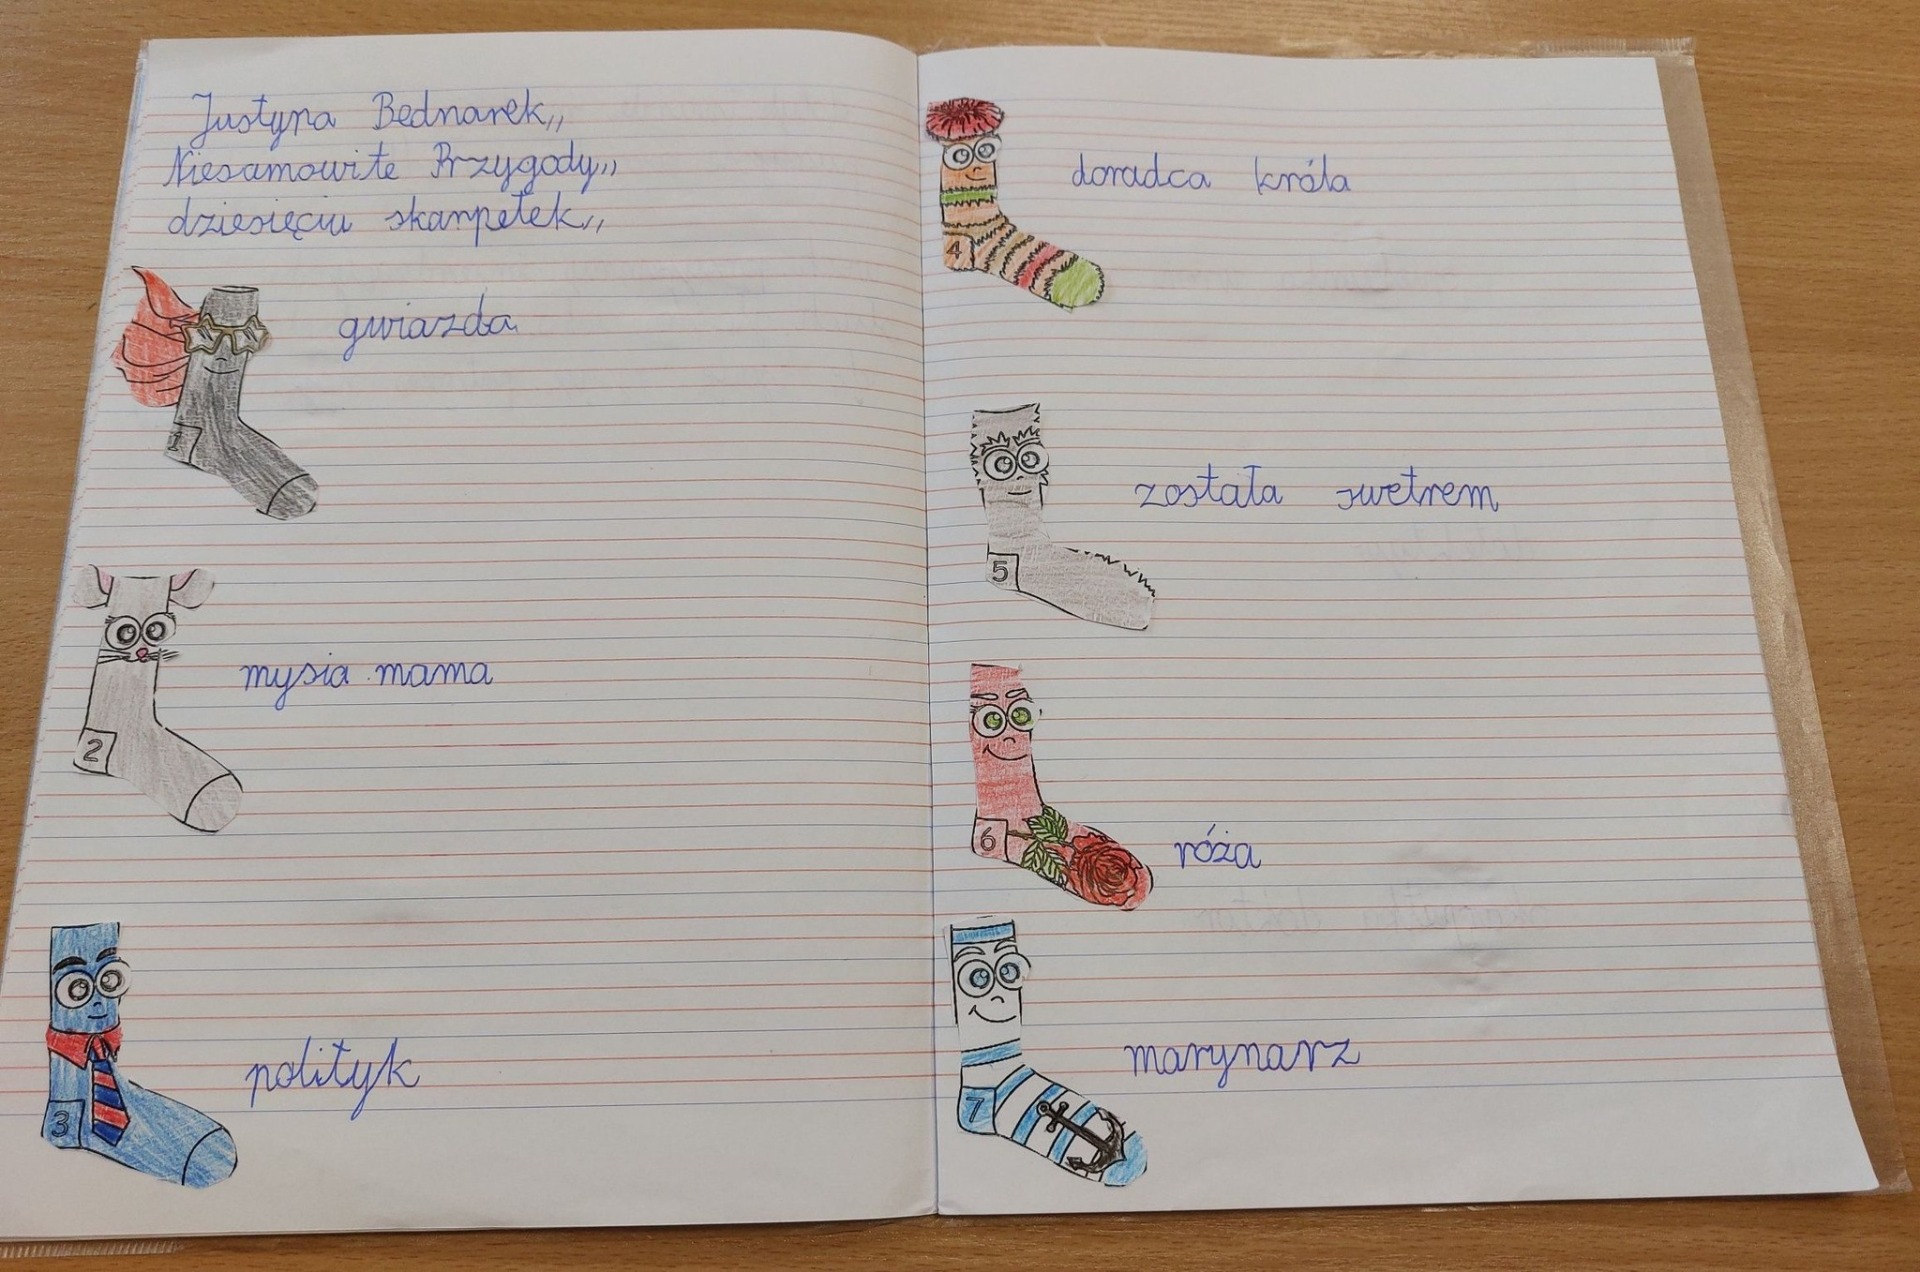 Justyna Bednarek,,
Niesamowite Przygody,,
dziesięciu skarpetek,,
gwiazda
1
mysia mama
2
polityk
3
doradca króla
4
została swetrem
5
róża
6
marynarz
7